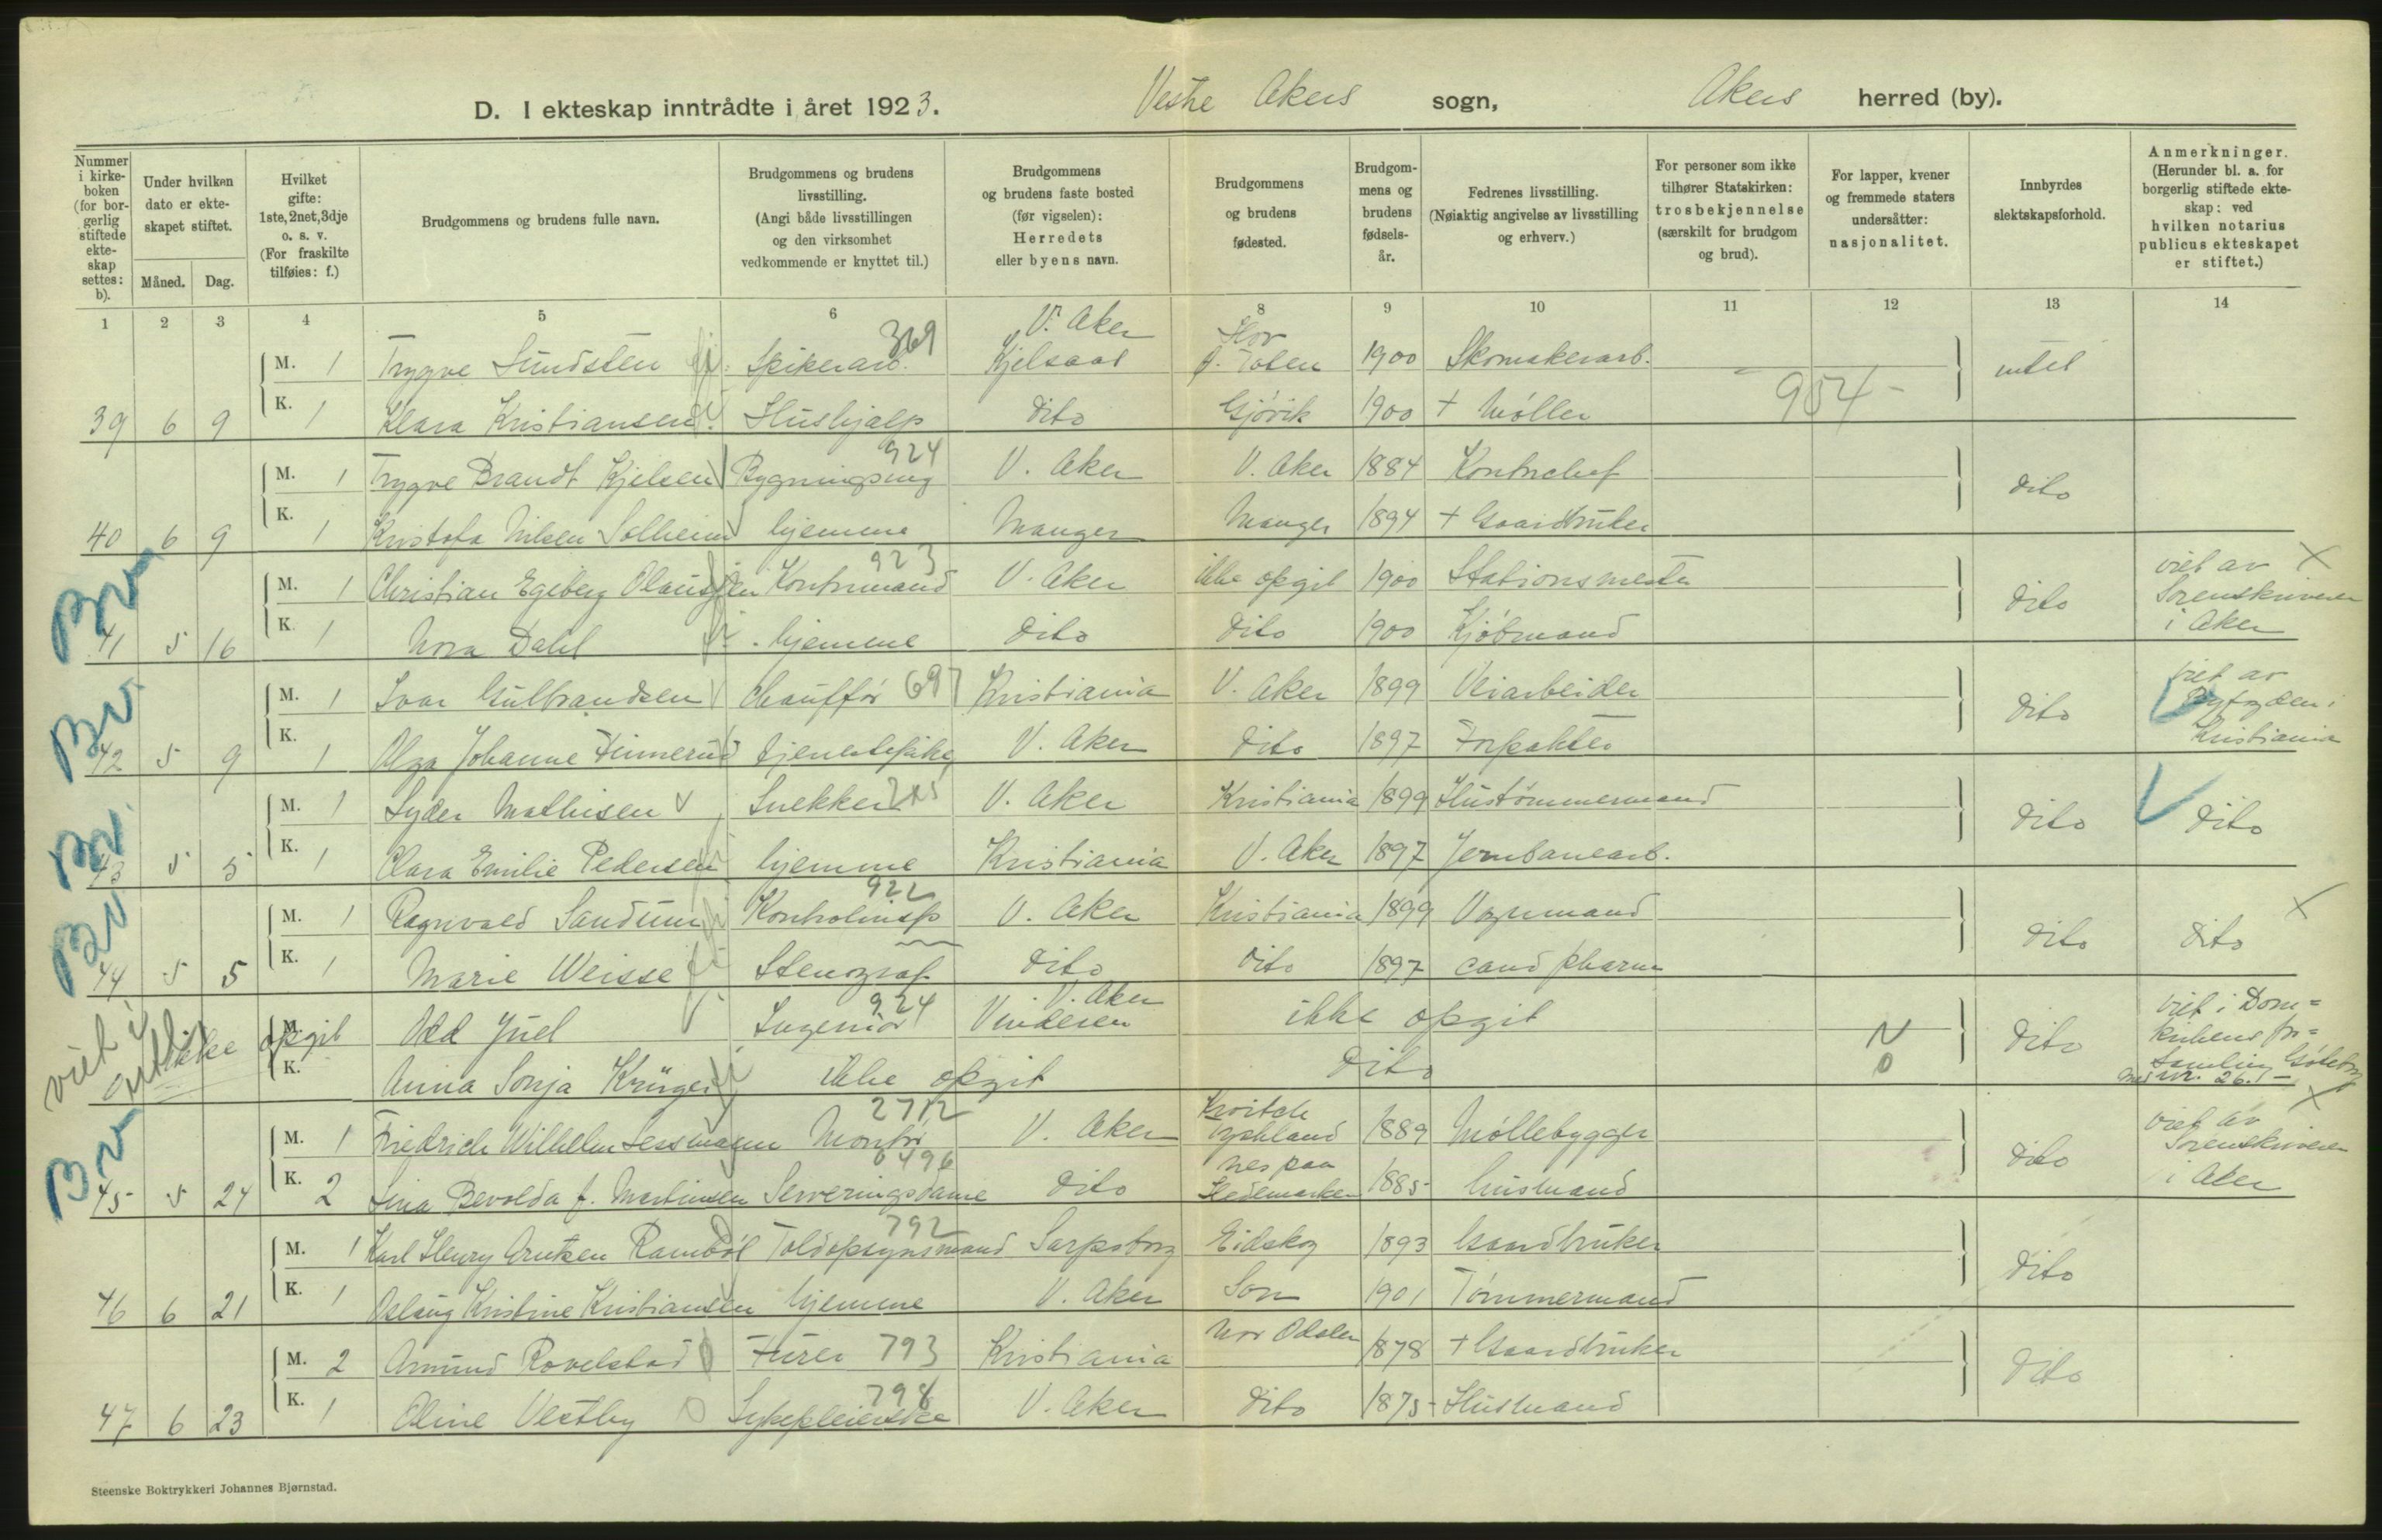 D. I ekteskap inntrådte i året 1923. Vestre Akers sogn, Akers herred (by).
Nummer i kirkeboken (for borgerlig stiftede ekteskap settes: b).
Under hvilken dato er ekteskapet stiftet.
Måned. Dag.
Hvilket gifte: 1ste, 2net, 3dje o. s. v. (For fraskilte tilføies: f.)
Brudgommens og brudens fulle navn.
Brudgommens og brudens livsstilling. (Angi både livsstillingen og den virksomhet vedkommende er knyttet til.)
Brudgommens og brudens faste bosted (før vigselen): Herredets eller byens navn.
Brudgommens og brudens fødested.
Brudgommens og brudens fødselsår.
Fedrenes livsstilling. (Nøiaktig angivelse av livsstilling og erhverv.)
For personer som ikke tilhører Statskirken: trosbekjennelse (særskilt for brudgom og brud).
For lapper, kvener og fremmede staters undersåtter: nasjonalitet.
Innbyrdes slektskapsforhold.
Anmerkninger. (Herunder bl. a. for borgerlig stiftede ekteskap: ved hvilken notarius publicus ekteskapet er stiftet.)
1 2 3 4 5 6 7 8 9 10 11 12 13 14
M. 1 Trygve Sundsten Spikerarb. 369 V. Aker Kjelsaas Toten 1900 Skomakerarb. intet
39 6 9 K. 1 Klara Kristiansen Hushjælp dito Gjövik 1900 + Möller 954
M. 1 Trygve Brandt Kjelsen Bygningsing 924 V. Aker V. Aker 1884 Kontrchef dito
40 6 9 K. 1 Kristofa Nilsen Solheim hjemme Manger Manger 1894 + Gaardbruker
Bv M. 1 Christian Egeberg Olaussen Kontrmand 923 V. Aker ikke opgit 1900 Stationsmester dito viet av Sorenskriveren i Aker X
41 5 16 K. 1 Nora Dahl hjemme dito dito 1900 Kjöbmand
Bv. M. 1 Ivar Gulbrandsen Chaufför 697 Kristiania V. Aker 1899 Veiarbeider dito viet av Byfogden i Kristiania
42 5 9 K. 1 Olga Johanne Finnerud tjenestepike V. Aker dito 1897 Forpakter
Bv. M. 1 Syder Mathisen Snekker V. Aker Kristiania 1899 Hustömmermand dito dito
43 5 5 K. 1 Clara Emilie Pedersen hjemme Kristiania V. Aker 1897 Jernbanearb.
Bv M. 1 Ragnvald Sandum Kontrolinsp 922 V. Aker Kristiania 1899 Vognmand dito dito X
44 5 5 K. 1 Marie Weisse Stenograf dito dito 1897 cand pharm
viet i ikke opgit M. Odd Juel Ingeniör 924 V. Aker Vinderen ikke opgit N dito viet i Domkirkens forsamling Göteborg
K. Anna Sonja Krüger ikke opgit dito 0
Bv M. 1 Friedrich Wilhelm Lessmann Montör 2712 V. Aker Tyskland 1889 Möllebygger dito viet av Sorenskriveren i Aker X
45 5 24 K. 2 Lina Bevolda f. Martinsen Serveringsdame 496 dito Nes paa Hedemarken 1885 husmand
M. 1 Karl Henry Arntzen Ramböl Toldopsynsmand 792 Sarpsborg Eidskog 1893 Gaardbruker dito
46 6 21 K. 1 Aslaug Kristine Kristiansen hjemme V. Aker Son 1901 Tömmermand
M. 2 Amund Rovelstad Furer 793 Kristiania Nor Odalen 1878 + Gaardbruker dito
47 6 23 K. 1 Oline Vestby Sykepleierske 798 V. Aker dito 1875 Husmand
Steenske Boktrykkeri Johannes Bjørnstad.